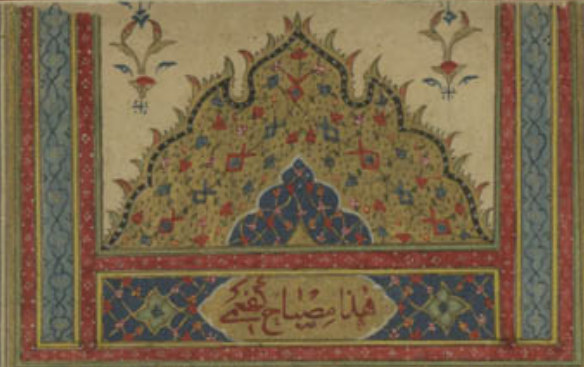 هذا مصباح كفعمي